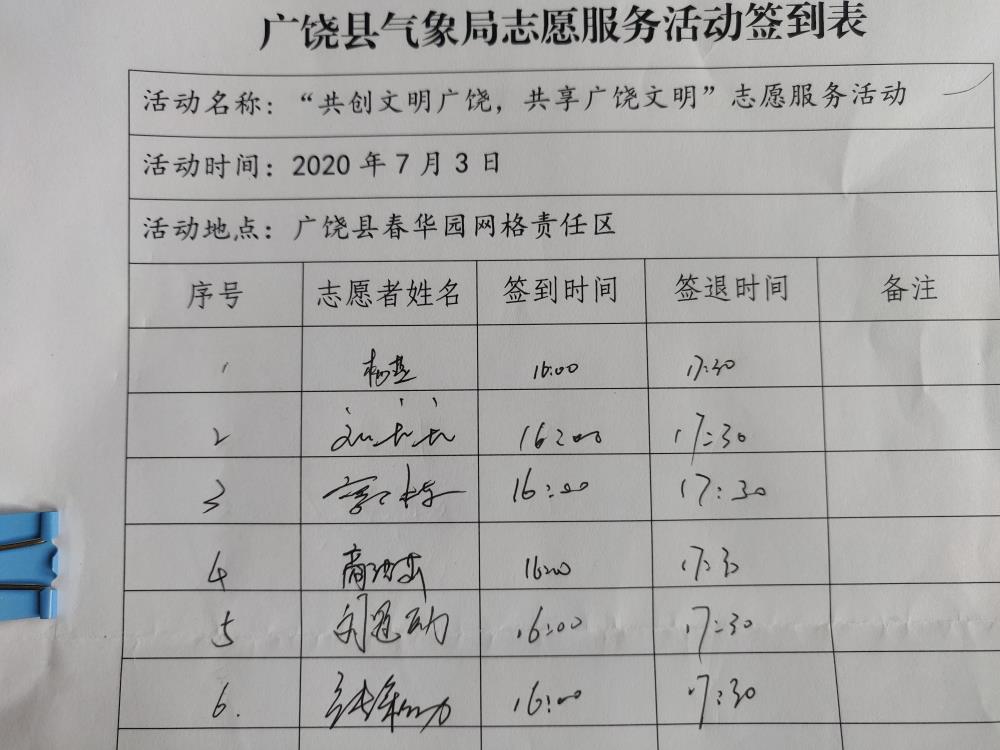 广饶县气象局志愿服务活动签到表
活动名称：“共创文明广饶，共享广饶文明”志愿服务活动
活动时间：2020 年 7 月 3 日
活动地点：广饶县春华园网格责任区
序号 志愿者姓名 签到时间 签退时间 备注
1 16:00 17:30
2 16:00 17:30
3 16:00 17:30
4 16:00 17:30
5 16:00 17:30
6. 16:00 17:30